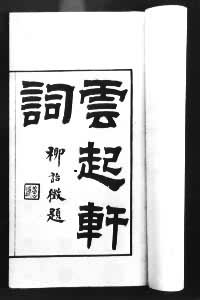 雲起軒
詞
柳詒徵題